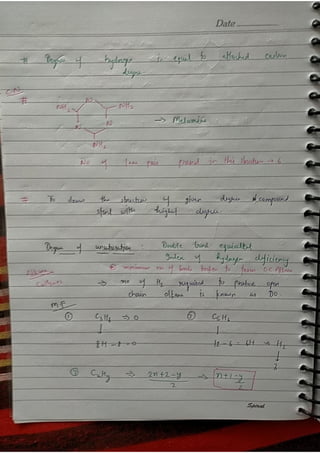 Date
# Degree of hydrogen is equal to attached carbon
degree.
C-N
#
N
NH2 NH2
N N
NH2
→ Melamine
No of lone pair present in this structure → 6
= To draw the structure of given degree of compound
start with highest degree.
Degree of unsaturation : Double bond equivalent
Index of hydrogen deficiency
⇒ no of H2 required to produce open
chain alkane is known as DO
M.F
① C3H8 ⇒ 0 ② C5H6
↓ ↓
8H - 8 = 0 12 - 6 = 6H ⇒ H2
↓
3
③ CxHy ⇒ 2n+2-y/2 → n+1-y/2